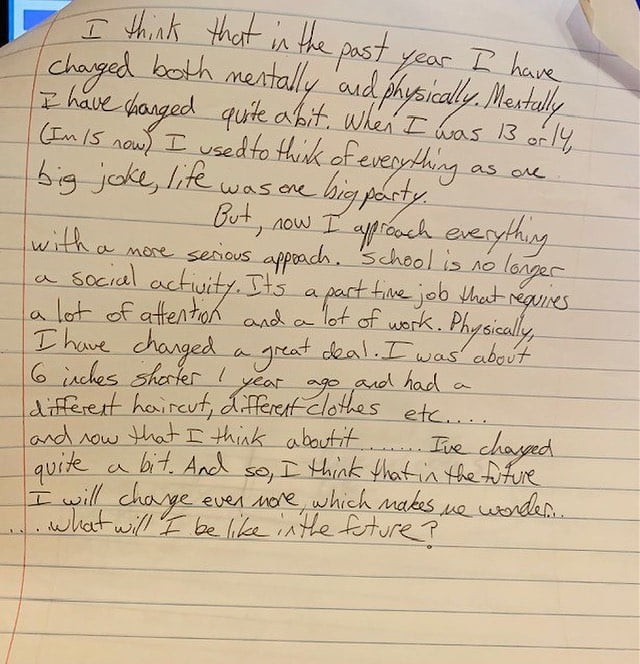 I think that in the past year I have
changed both mentally and physically. Mentally
I have changed quite a bit. When I was 13 or 14,
(Im 15 now) I used to think of everything as one
big joke, life was one big party.
But, now I approach everything
with a more serious appoach. School is no longer
a social activity. Its a part time job that requires
a lot of attention and a lot of work. Physically,
I have changed a great deal. I was about
6 inches shorter 1 year ago and had a
different haircut, different clothes etc.....
and now that I think about it ....... I've changed
quite a bit. And so, I think that in the future
I will change even more, which makes me wonder...
....what will I be like in the future?